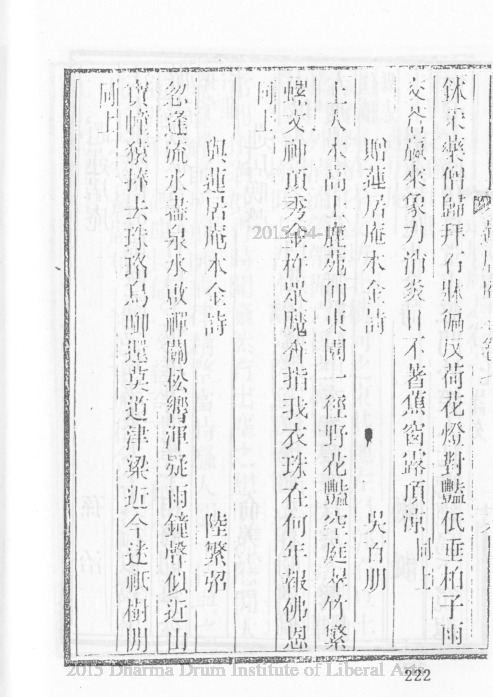 錸柒藥僧歸拜石牀徧反荷花燈對豔低垂柏子雨
交苔巖來象力消炎日不著蕉窗露頂涼同上
贈蓮居庵本金詩 吳百朋
上人本高士鹿苑卽東園一徑野花豔空庭翠竹繁
螺文神頂秀金杵眾魔奔指我衣珠在何年報佛恩
同上
與蓮居庵本金詩 陸繁弨
忽逢流水盡泉水啟禪關松響渾疑雨鐘聲似近山
寶幢猿捧去珠珞鳥啣還莫道津梁近今迷祇樹間
同上
2015-04-
222
2015 Dharma Drum Institute of Liberal Arts